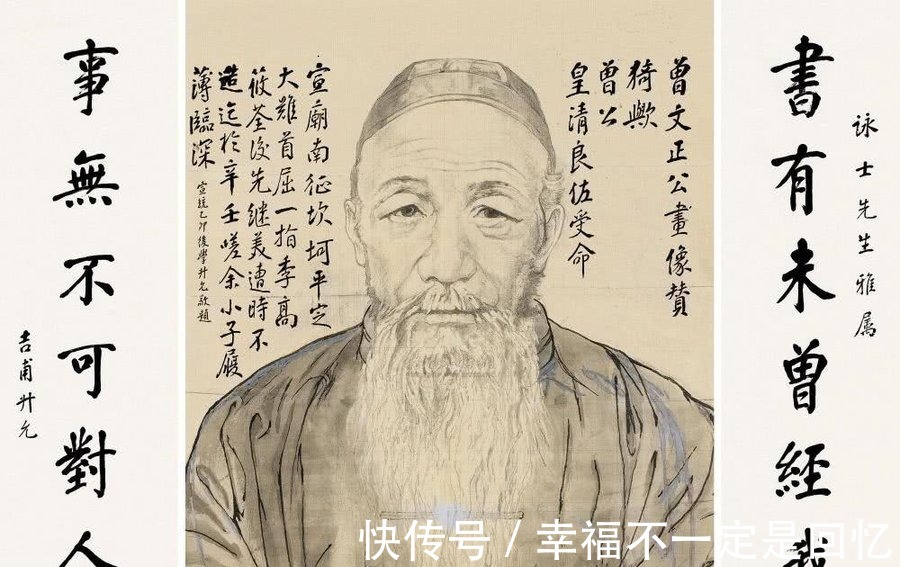 詠士先生雅属
書有未曾經我
曾文正公畫像贊
猗歟
曾公
皇清良佐受命
宣廟南征坎坷平定
大難首屈一指李高
筱荃後先继美遭時不
造迄於辛壬嗟余小子履
薄臨深
宣統乙卯後學升允敬題
事無不可對人
吉甫升允
快传号 / 幸福不一定是回忆